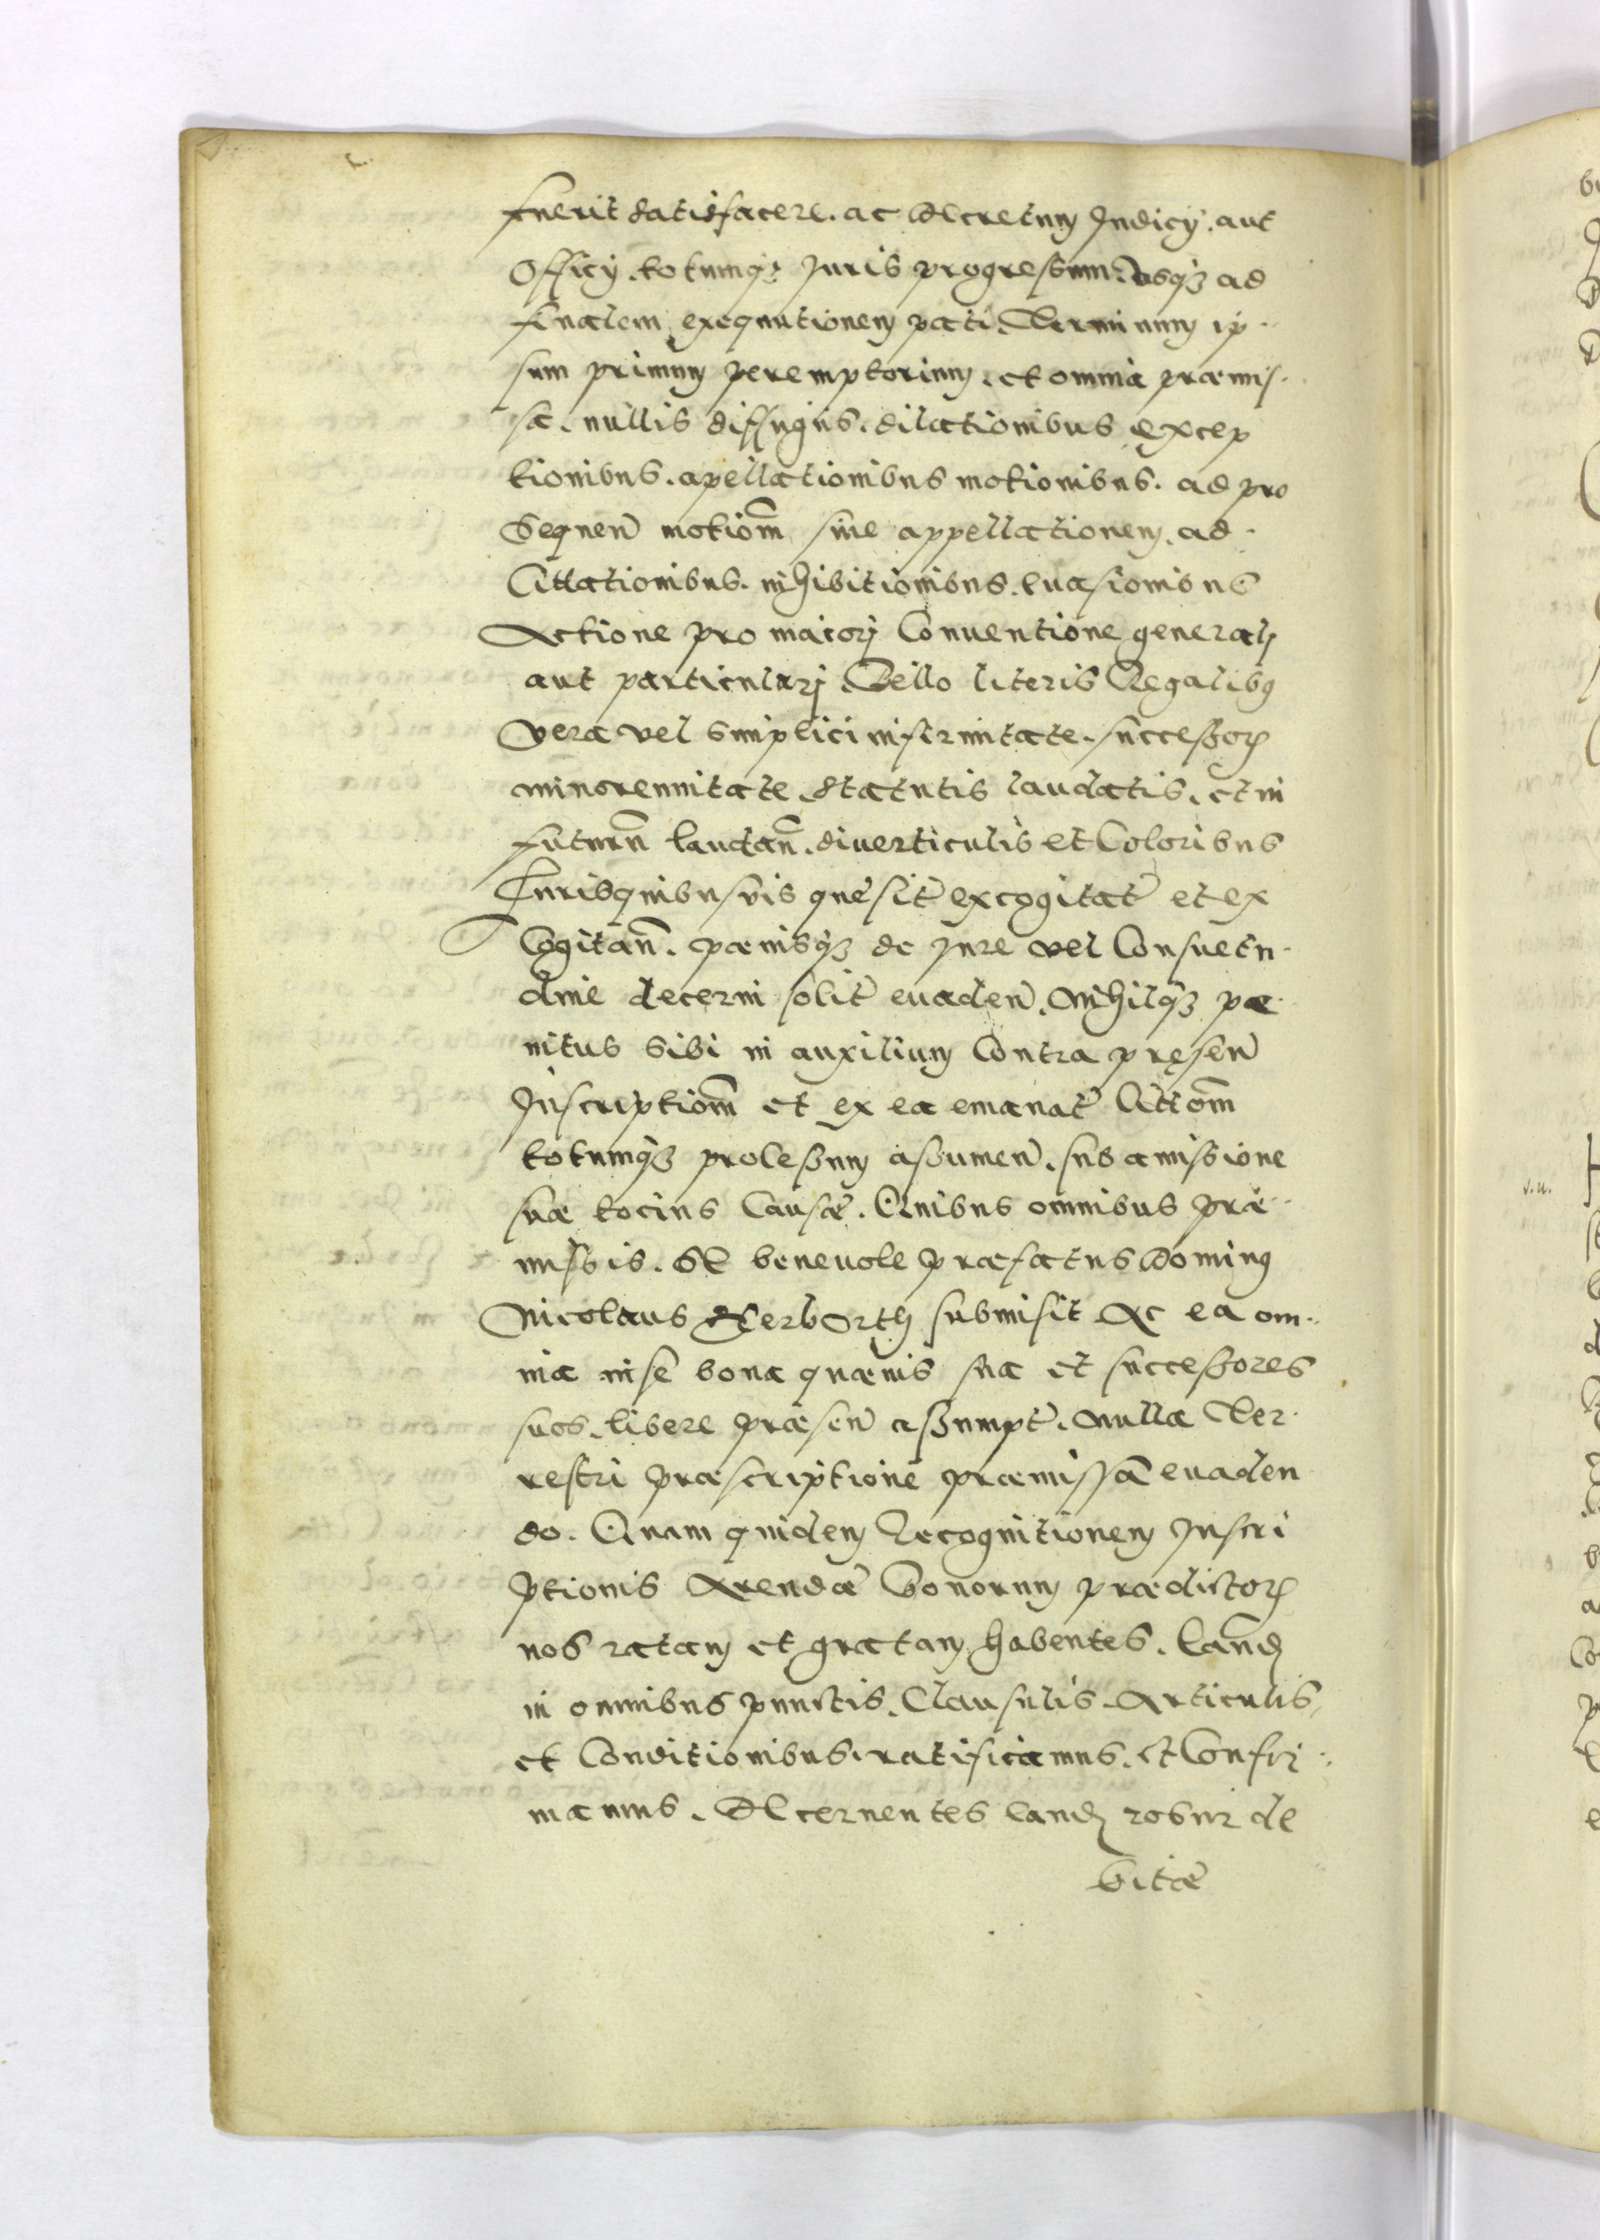 fuerit satisfacere. ac decretum Judicÿ. aut
Officÿ. totumq3 Juris progressum. usq3 ad
finalem exequutionem pati. Terminum ip
sum primum peremptorium. et omnia præmis
sa. nullis diffugÿs. dilationibus excep
tionibus. apellationibus motionibus. ad pro
sequeñ motiom̃ siue appellationem. ad
Cittationibus. inhibitionibus. euasionibus
Actione pro maiorj Conuentione generalj
aut particularj Bello literis Regalibg
vera vel simplici infirmitate. successoꝝ
minorennitate. statutis laudatis. et in
futurũ laudañ. diverticulis et Coloribus
Jurisquibusvis quesit̃ excogitat̃ et ex
Cogitañ. pænisq3 de Jure vel Consuetu
dine decerni solit̃ euadeñ. Nihilq3 pæ
nitus sibi in auxilium Contra pręseñ
Inscriptiom̃ et ex ea emanat̃ Cittiom̃
totumq3 processum assumeñ. sub amissione
suæ totius Causæ. Quibus omnibus præ
missis. SE benevole præfatus Doming
Nicolaus Terborth submisit Ac ea om
nia in se bona quævis sua et successores
suos. libere præseñ assumpt̃. Nulla Ter
restri præscriptione præmissã euaden
do. Quam quidem Recognitionem Inscri
ptionis Arendæ Bonorum prædictoꝝ
nos ratam et gratam habentes. Eand̃
in omnibus punctis. Clausulis Articulis
et Conditionibus. ratificamus. et Confir
mamus. Decernentes eand̃ robur de
bitæ